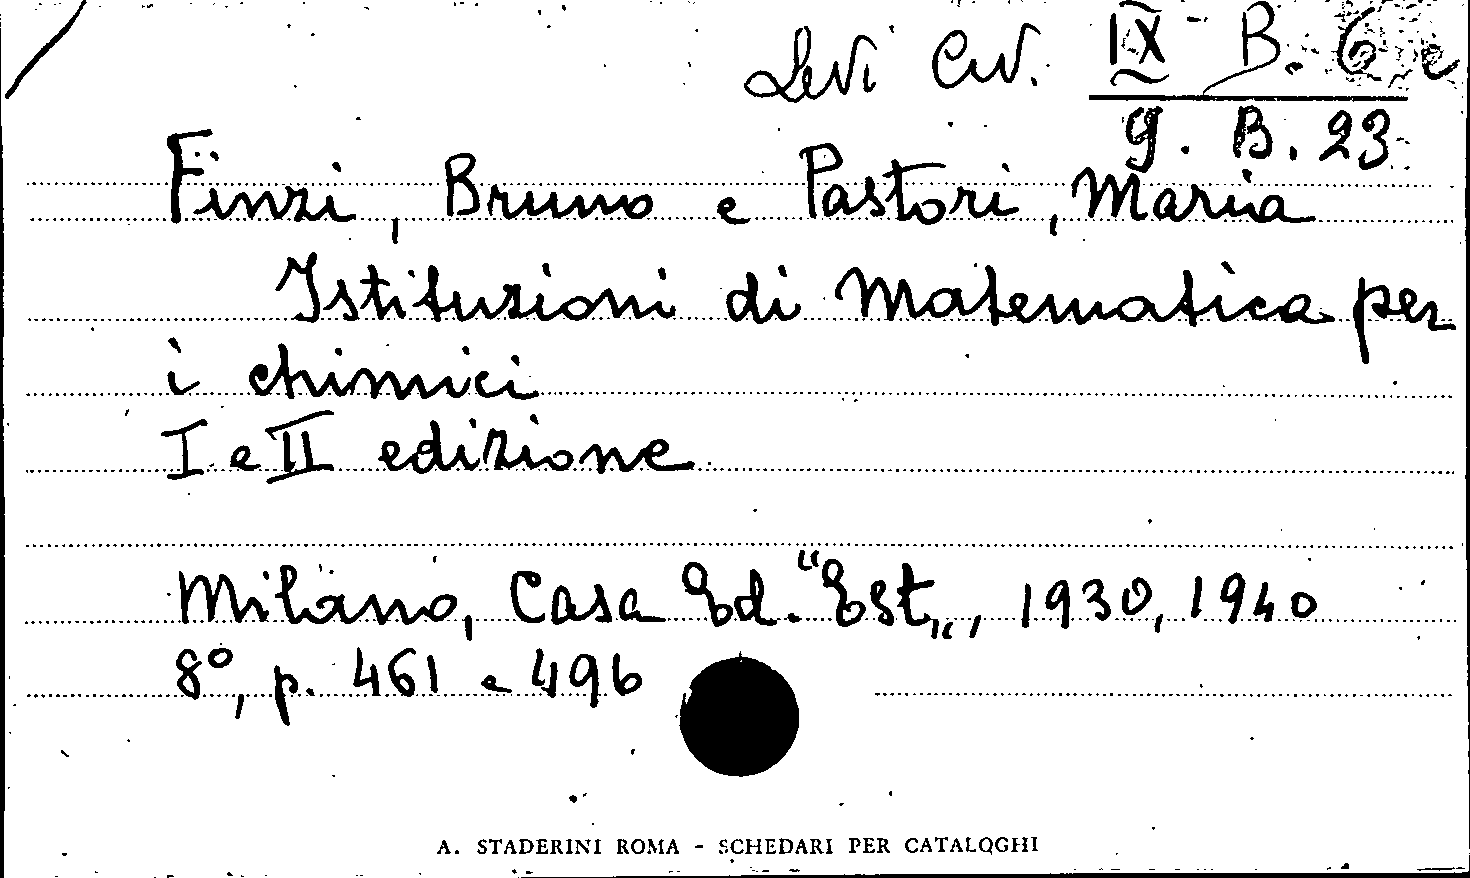 Levi Civ. IX B. 6 e
9. B. 23
Finzi, Bruno e Pastori, Maria
Istituzioni di Matematica per
i chimici
I e II edizione
Milano, Casa Ed. "Est„, 1930, 1940
8°, p. 461 e 496
A. STADERINI ROMA - SCHEDARI PER CATALOGHI